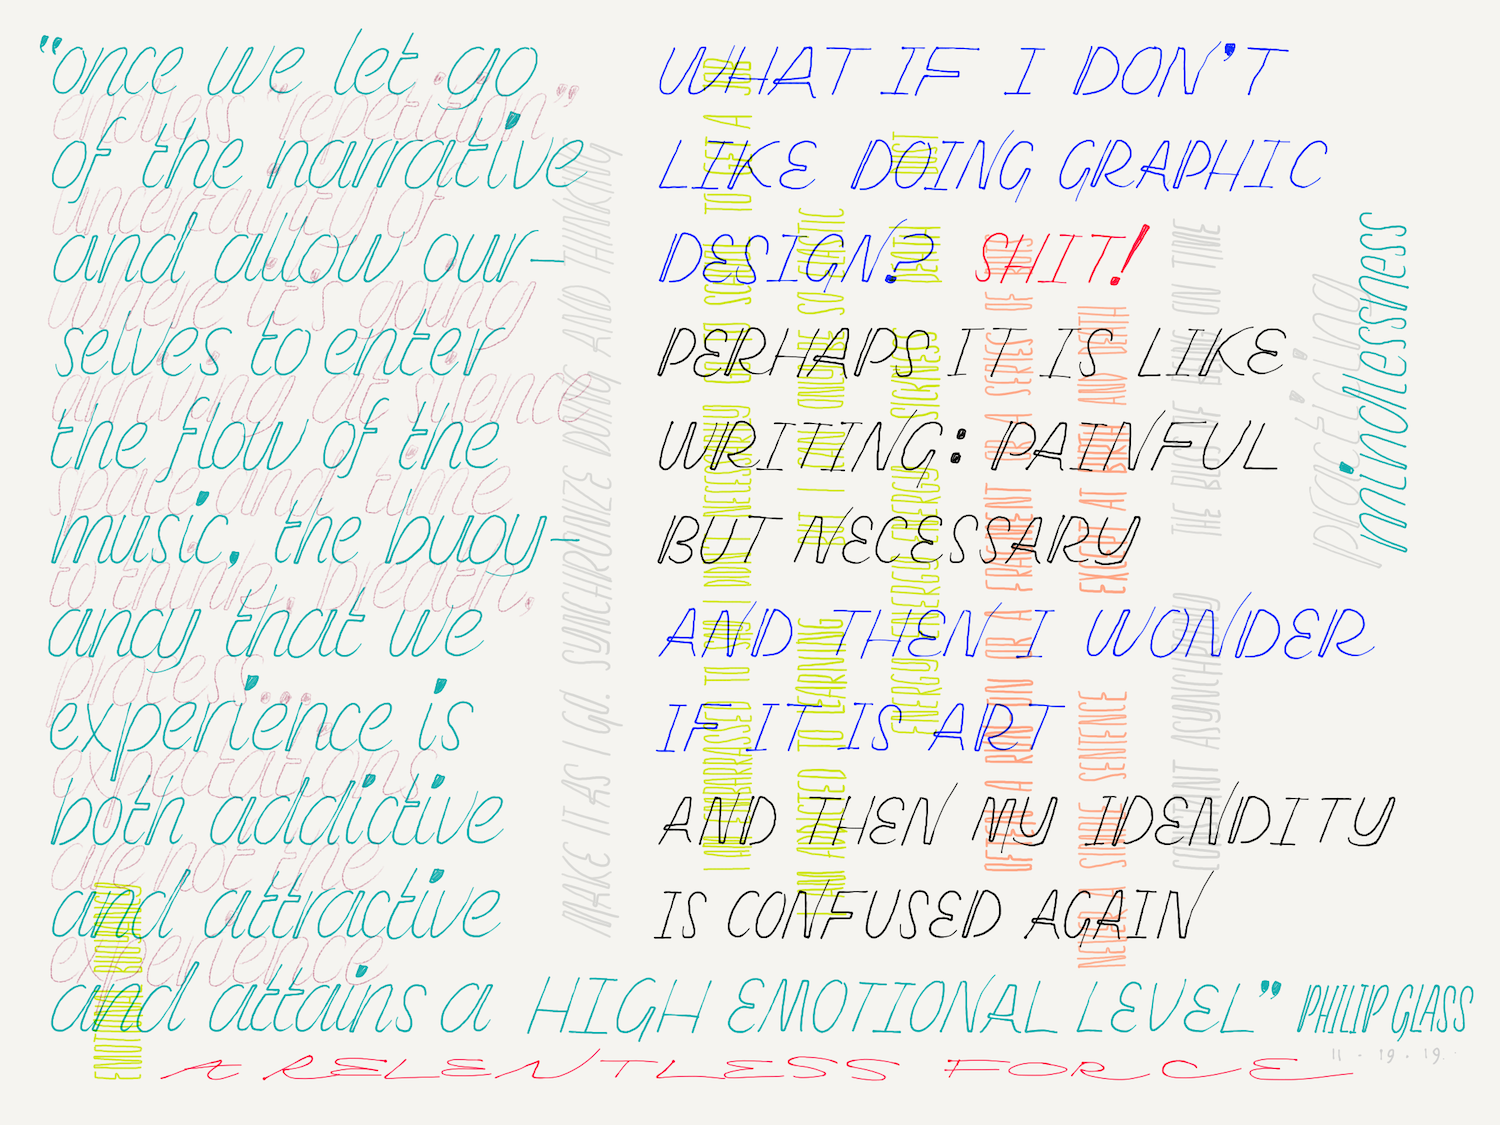 "once we let go
of the narrative
and allow our-
selves to enter
the flow of the
music, the buoy-
ancy that we
experience is
both addictive
and attractive
and attains a HIGH EMOTIONAL LEVEL" PHILIP GLASS
11 . 19 . 19.
A RELENTLESS FORCE
endless "repetition"
uncertainty of
where it's going
arriving at silence
space and time
to think, breath,
process...
expectations
are not the
experience
MAKE IT AS I GO. SYNCHRONIZE DOING AND THINKING
WHAT IF I DON'T
LIKE DOING GRAPHIC
DESIGN? SHIT!
PERHAPS IT IS LIKE
WRITING: PAINFUL
BUT NECESSARY
AND THEN I WONDER
IF IT IS ART
AND THEN MY IDENDITY
IS CONFUSED AGAIN
I AM EMBARRASSED TO SAY I DON'T NECESSARILY GO TO SCHOOL TO GET A JOB
I AM ADDICTED TO LEARNING BUT I CAN ONLY BE SO ELASTIC
ENERGY ENERGY ENERGY ENERGY SICKNESS DEATH DUST
OFTEN A RUN ON OR A FRAGMENT OR A SERIES OF
NEVER A SIMPLE SENTENCE EXCEPT AT BIRTH AND DEATH
CONSTANT ASYNCHRONY THE BLUR OF BEING ON TIME
practicing
mindlessness
EMOTIONAL